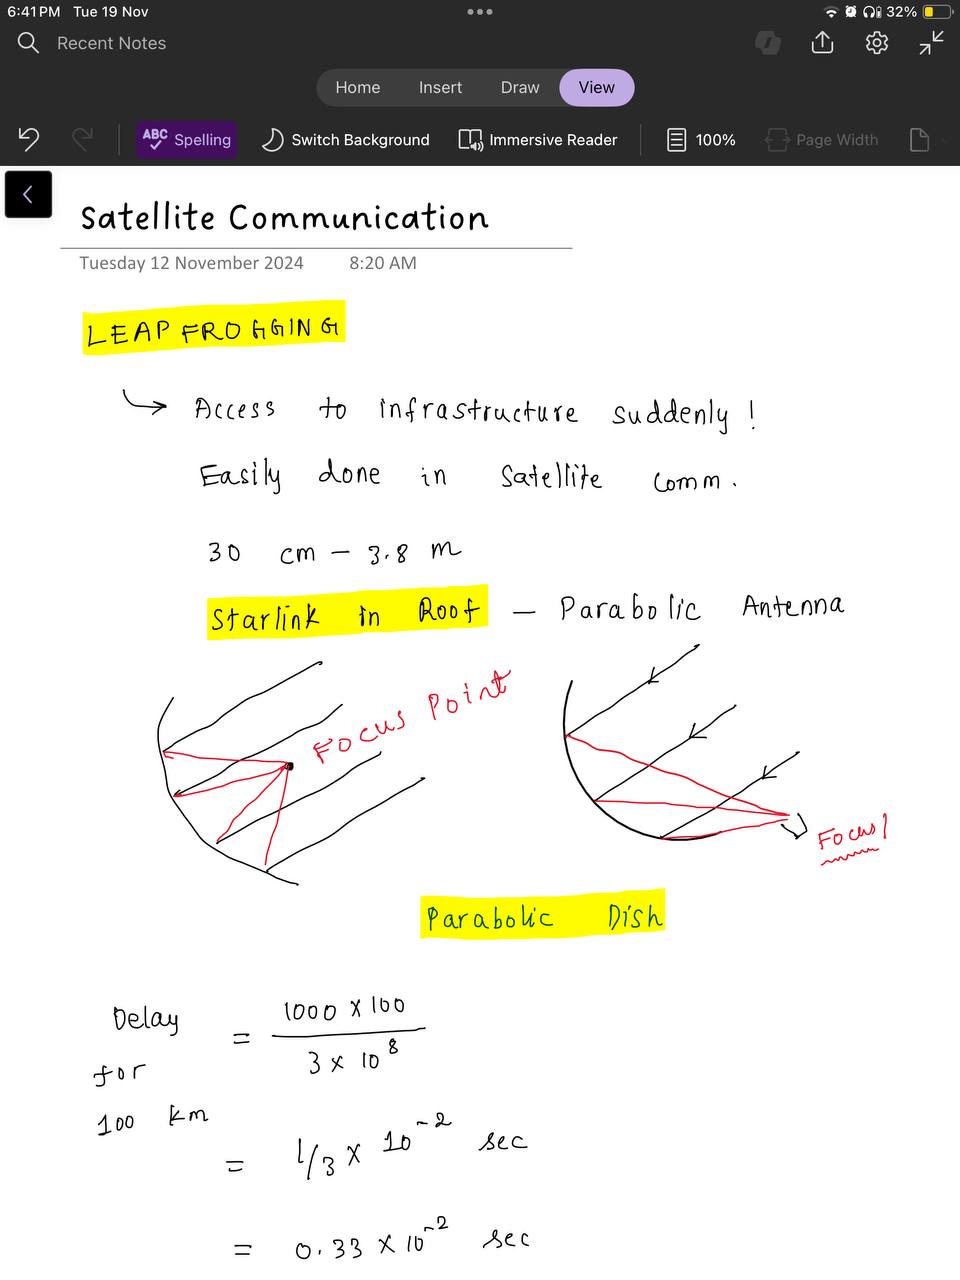 6:41 PM Tue 19 Nov
32%
Recent Notes
Home Insert Draw View
ABC Spelling Switch Background Immersive Reader 100% Page Width
Satellite Communication
Tuesday 12 November 2024 8:20 AM
LEAP FROGGING
Access to infrastructure suddenly!
Easily done in Satellite comm.
30 cm - 3.8 m
Starlink in Roof - Parabolic Antenna
Focus Point
Focus!
Parabolic Dish
Delay for 100 km = 1000 x 100 / 3 x 10^8
= 1/3 x 10^-2 sec
= 0.33 x 10^-2 sec